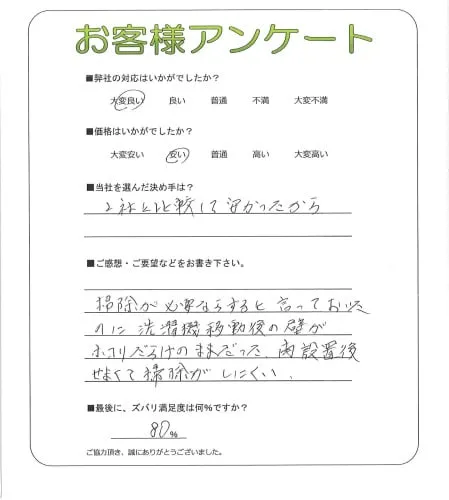 お客様アンケート
■弊社の対応はいかがでしたか?
大変良い 良い 普通 不満 大変不満
■価格はいかがでしたか?
大変安い 安い 普通 高い 大変高い
■当社を選んだ決め手は?
2社と比較して安かったから
■ご感想・ご要望などをお書き下さい。
掃除が必要ならすると言っておいた
のに洗濯機移動後の壁が
ホコリだらけのままだった、再設置後
せまくて掃除がしにくい、
■最後に、ズバリ満足度は何%ですか?
80%
ご協力頂き、誠にありがとうございました。